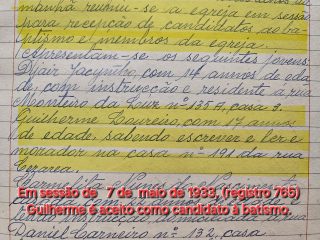 manhã reuniu-se a egreja em sessão
para recepção de candidatos ao ba-
ptismo e membros da egreja.
Apresentam-se os seguintes jovens:
Djair Jacyntho, com 14 annos de eda-
de, com instrucção e residente á rua
Monteiro da Luz nº 135 A, casa 3.
Guilherme Loureiro, com 17 annos
de edade, sabendo escrever e ler e
morador na casa nº 191 da rua
Cezarea.
Em sessão de 7 de maio de 1933, (registro 765)
Guilherme é aceito como candidato à batismo.
Daniel Carneiro nº 132, casa